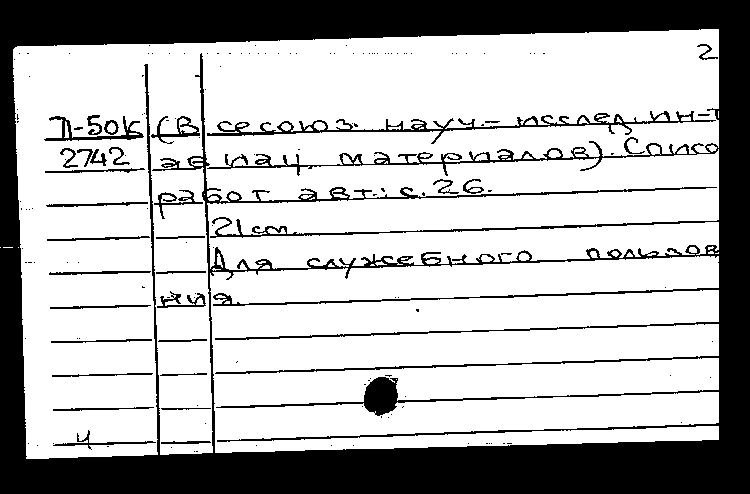 2
П-50К (Всесоюз. науч.-исслед. ин-т
2742 авиац. материалов). Списо
работ авт.: с. 26.
21 см.
Для служебного пользов
ния.
4